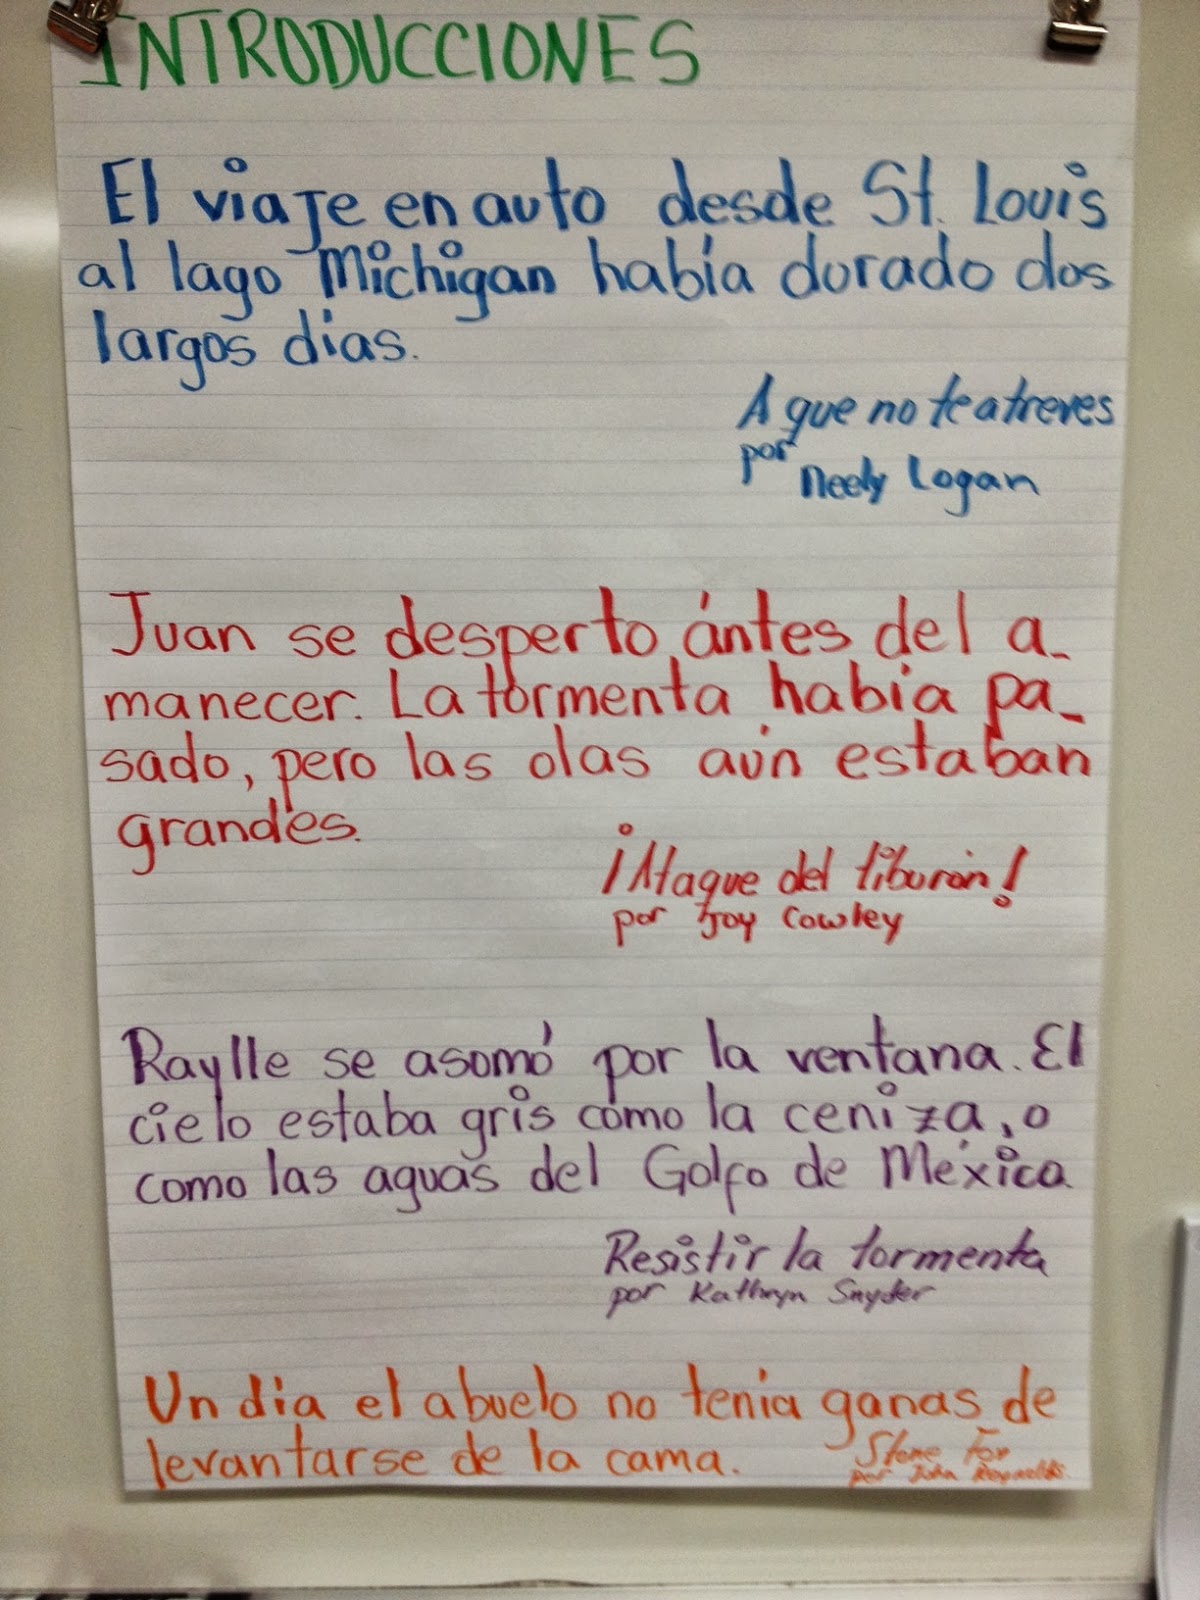 INTRODUCCIONES
El viaje en auto desde St. Louis
al lago Michigan había durado dos
largos días.
A que no te atreves
por
Neely Logan
Juan se desperto ántes del a-
manecer. La tormenta había pa-
sado, pero las olas aún estaban
grandes.
¡Ataque del tiburón!
por Joy Cowley
Raylle se asomó por la ventana. El
cielo estaba gris como la ceniza, o
como las aguas del Golfo de México
Resistir la tormenta
por Kathryn Snyder
Un día el abuelo no tenía ganas de
levantarse de la cama.
Stone Fox
por John Reynolds